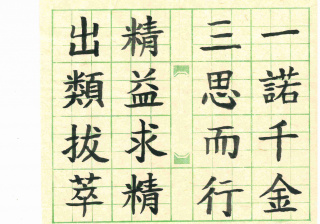 一諾千金
三思而行
精益求精
出類拔萃